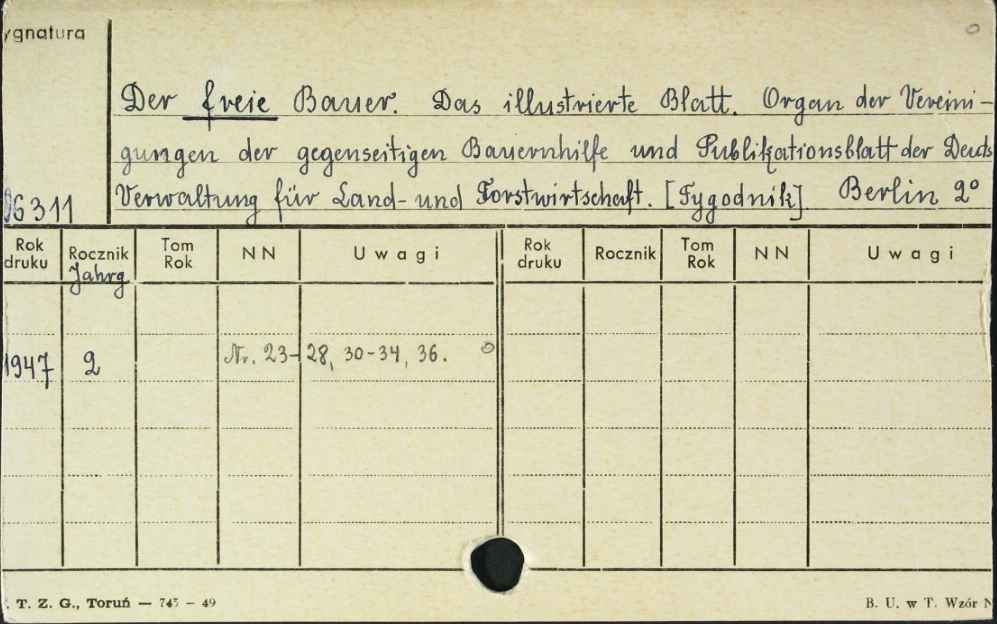 ygnatura
Der freie Bauer. Das illustrierte Blatt. Organ der Vereini-
gungen der gegenseitigen Bauernhilfe und Publikationsblatt der Deuts
Verwaltung für Land- und Forstwirtschaft. [Tygodnik] Berlin 2°
06311
Rok druku Rocznik Tom Rok NN Uwagi Rok druku Rocznik Tom Rok NN Uwagi
Jahrg
1947 2 Nr. 23-28, 30-34, 36.
T. Z. G., Toruń — 745 – 49 B. U. w T. Wzór N